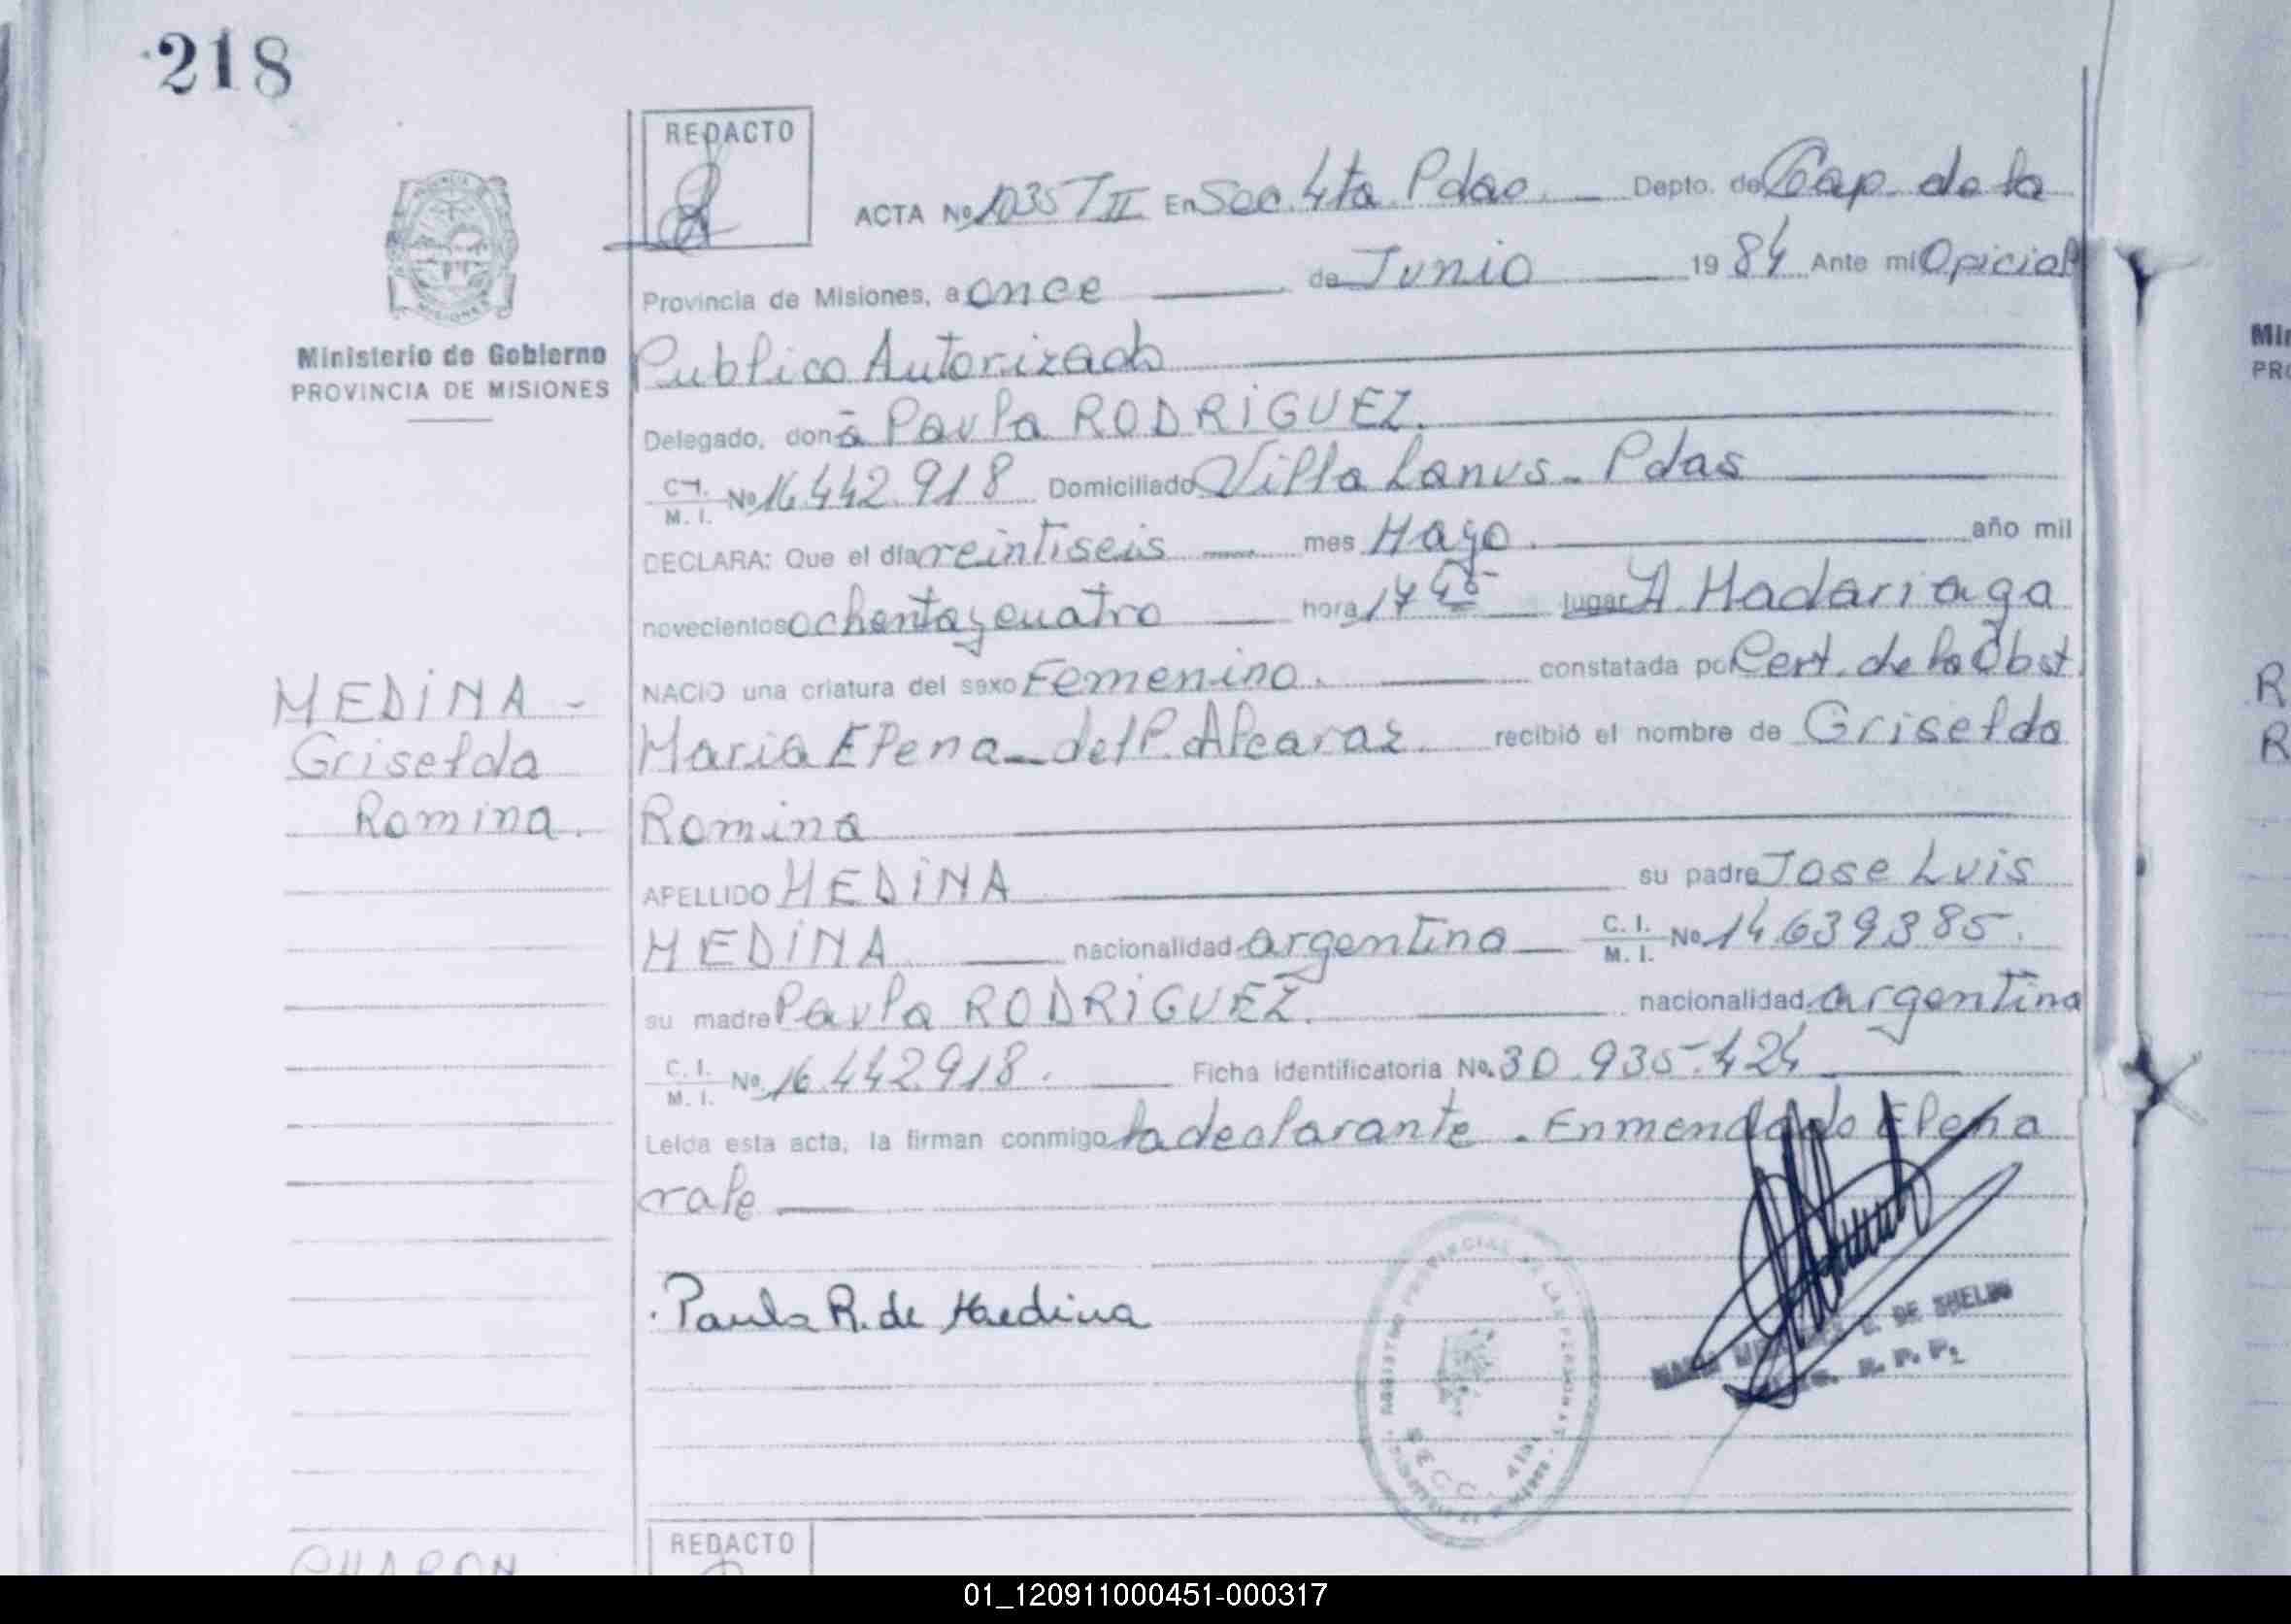 218
REDACTO
ACTA No 1035 T II En Sec. 4ta Pdas. Depto. de Cap. de la
Provincia de Misiones, a once de Junio 1984 Ante mi Oficial
Ministerio de Gobierno
PROVINCIA DE MISIONES
Publico Autorizado
Delegado, don ā Paula RODRiGUEZ.
C.I. M. I. No 16.442.918 Domiciliado Villa Lanus - Pdas
DECLARA: Que el día veintiseis mes Mayo. año mil
novecientos ochenta y cuatro hora 17 45 lugar H Madariaga
NACIO una criatura del sexo Femenino. constatada por Cert. de la Obst.
Maria Elena del P. Alcaraz recibió el nombre de Griselda
Romina
MEDiNA -
Griselda
Romina.
APELLIDO MEDiNA su padre Jose Luis
MEDiNA nacionalidad argentina C. I. M. I. No 14.639.385.
su madre Paula RODRiGUEZ. nacionalidad argentina
C. I. M. I. No. 16.442.918. Ficha identificatoria No. 30.935.424
Leída esta acta, la firman conmigo la declarante. Enmendado Elena
vale
Paula R. de Medina
DE SHELDO
SECC. 4ta
REDACTO
01_120911000451-000317